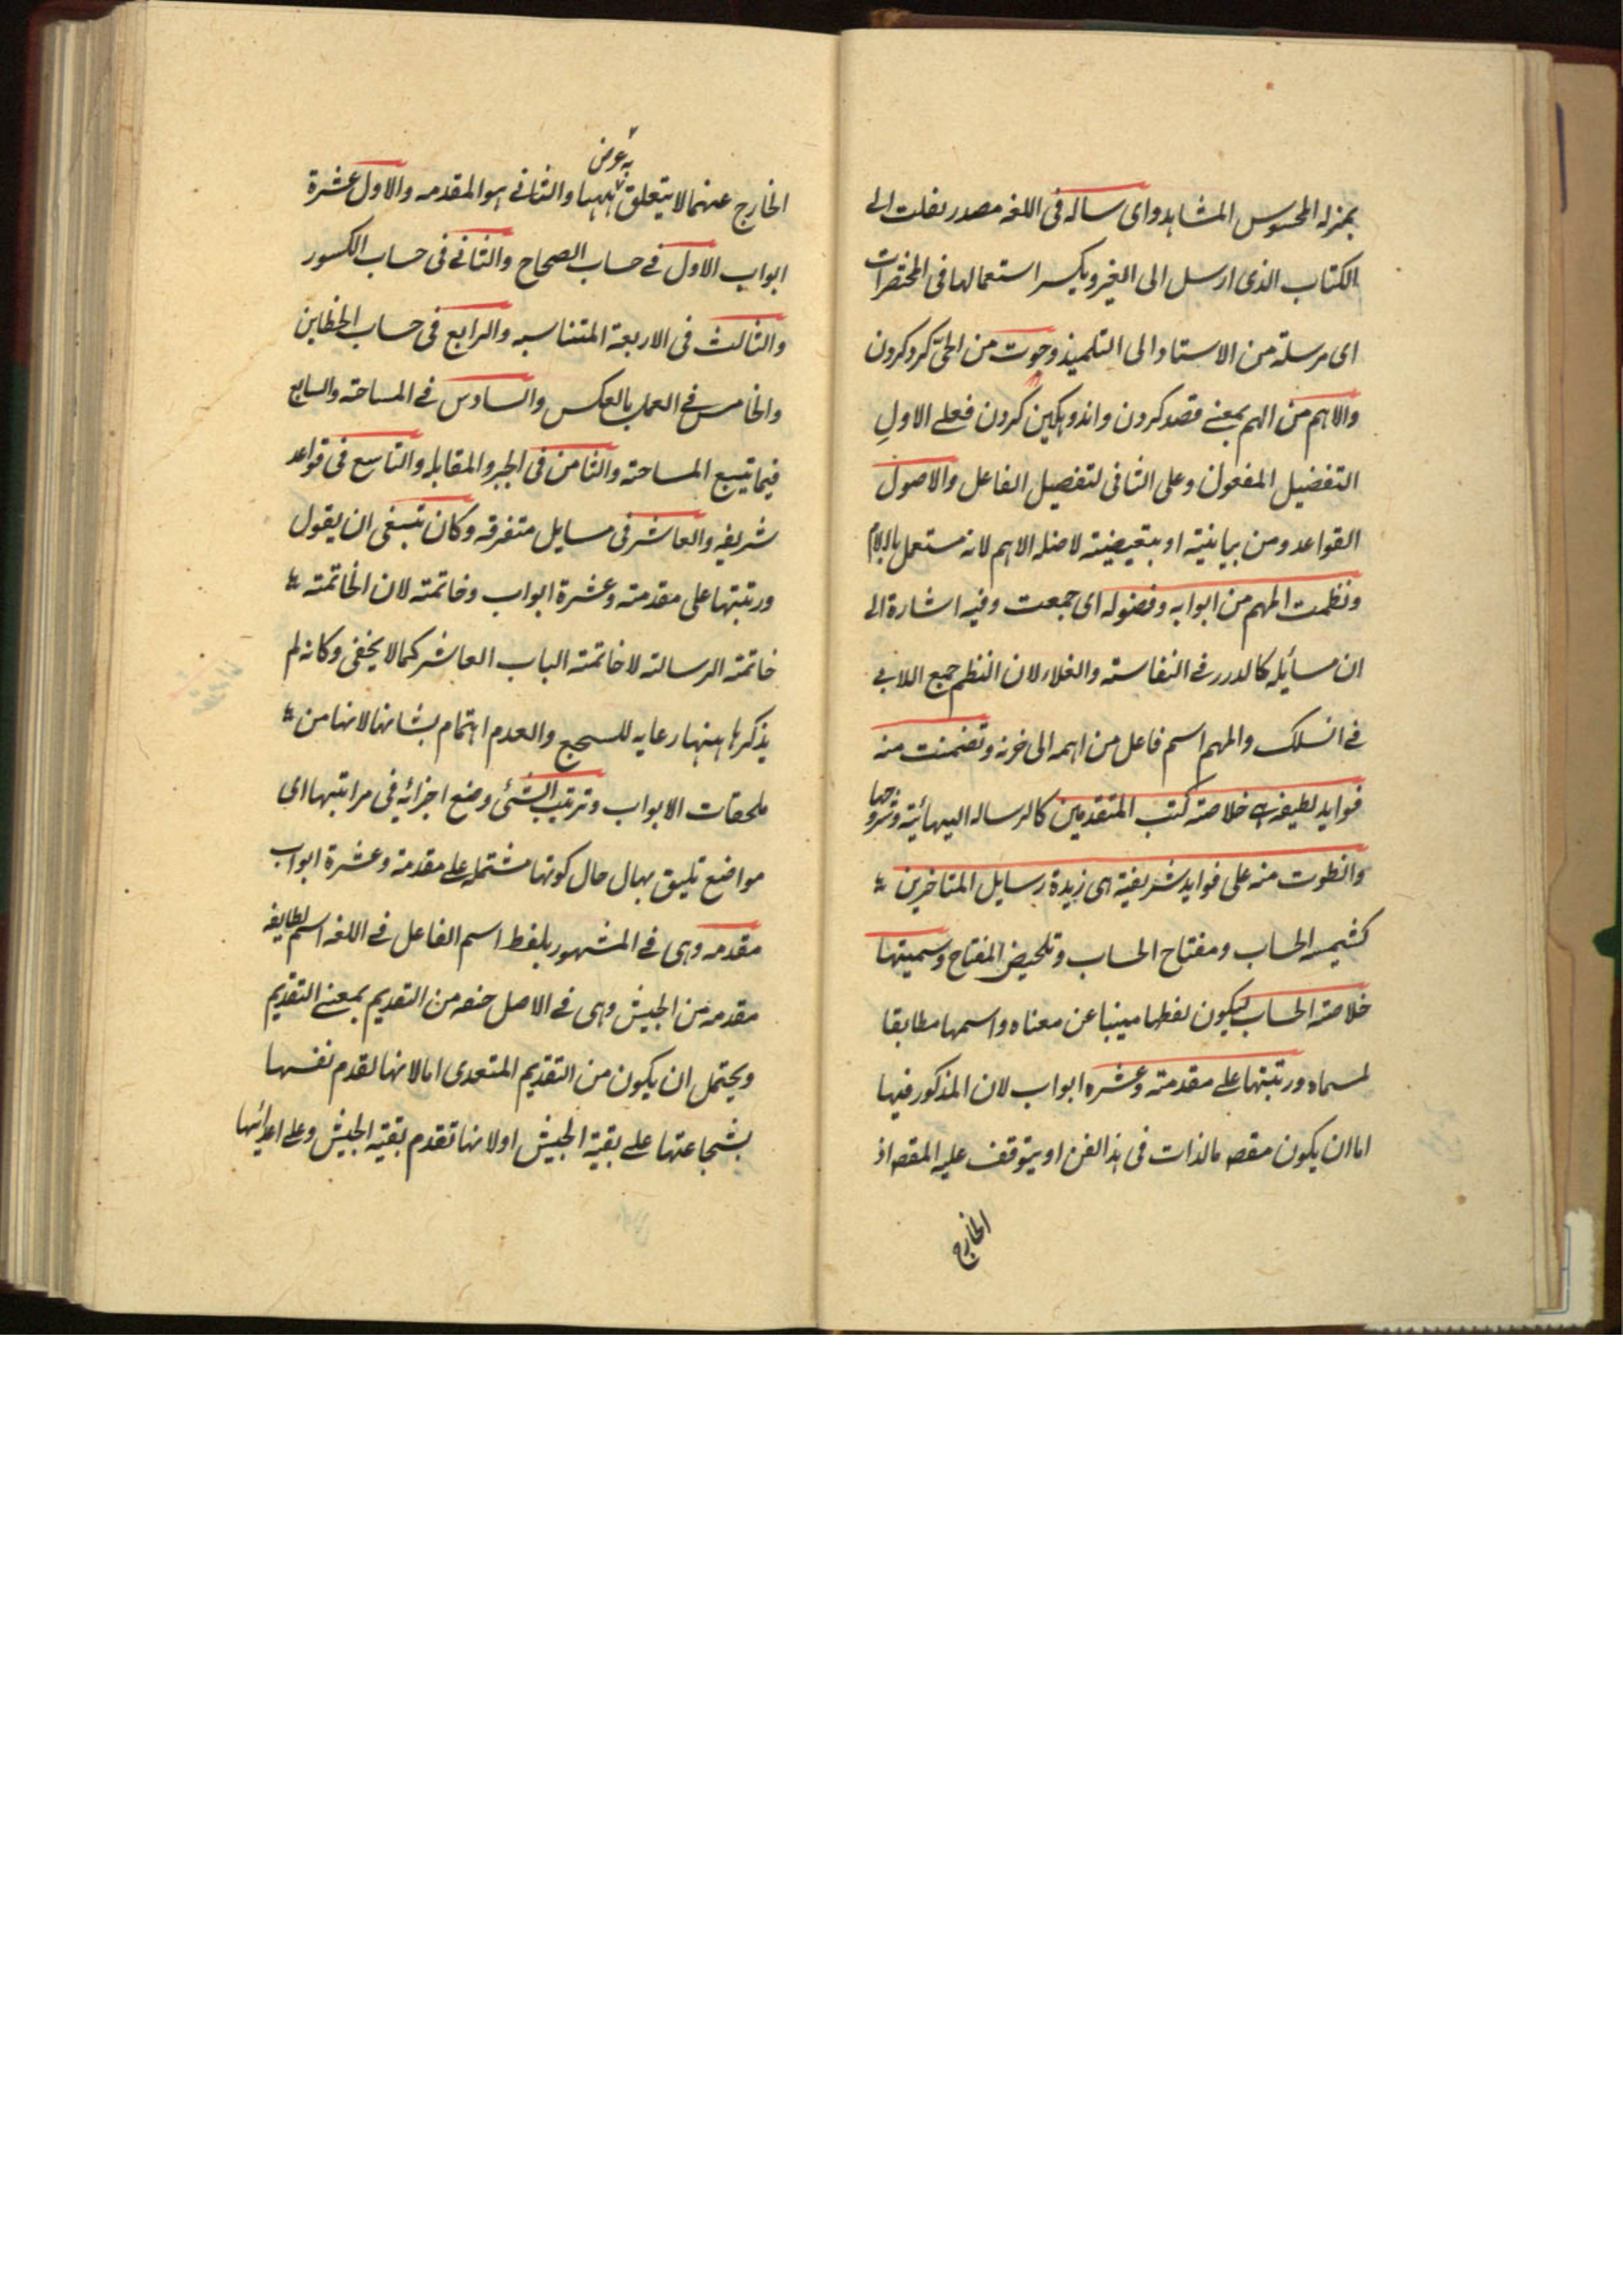 بمنزله المحسوس المشاهد واى ساله فى اللغه مصدر نقلت الى
الكتاب الذى ارسل الى الغير ويكسر استعمالها فى المختصرات
اى مرسلة من الاستاد الى التلميذ وحوت من الحىّ كرد كردن
والاهم من الهم بمعنے قصد كردن واندوهكين كردن فعلے الاولِ
التفضيل المفعول وعلى الثانى لتفصيل الفاعل والاصول
القواعد ومن بيانية او بتعيضية لاصله الاهم لانه مستعمل بالام
ونظمت المهم من ابوابه وفصوله اى جمعت وفيه اشارة الى
ان مسائيله كالدرر فے النفاسته والغلاء لان النظم جمع اللالى
فے السلك والمهم اسم فاعل من اهمه الى حزنه وتضمنت منه
فوايد لطيفة هى خلاصته كتب المتقدمين كالرساله البهائية وشروحها
وانطوت منه على فوايد شريفية هى زبدة رسايل المتاخرين
كشمسه الحساب ومفتاح الحساب وتلخيض المفتاح وسميتها
خلاصته الحساب ليكون لفظها مينبا عن معناه واسمها مطابقا
لمسماه ورتبتها علے مقدمته وعشره ابواب لان المذكور فيها
اما ان يكون مقصه بالذات فى هذا الفن او يتوقف عليه المقصه اذ
الخارج
به غرض
الخارج عنهما لا يتعلق ههنا والثانے هو المقدمه والاول عشرة
ابواب الاول فے حساب الصحاح والثانے فى حساب الكسور
والثالث فى الاربعة المتناسبه والرابع فى حساب الخطاين
والخامس فے العمل بالعكس والسادس فے المساحته والسابع
فيما يتبع المساحته والثامن فى الجبر والمقابله والتاسع فى قواعد
شريفه والعاشر فى مسايل متفرقه وكان تنبغى ان يقول
ورتبتها على مقدمته وعشرة ابواب وخاتمته لان الخاتمته
خاتمته الرسالته لا خاتمته الباب العاشر كما لا يخفى وكانه لم
يذكرها هنهار عايه للسجع والعدم اهتمام بشانها لانها من
ملحقات الابواب وترتيب الشئى وضع اجزائه فى مراتبها اى
مواضع تليق بهال حال كونها مشتمله على مقدمة وعشرة ابواب
مقدمه وهى فے المشهور بلفظ اسم الفاعل فے اللغه اسم لطايفه
مقدمه من الجيش وهى فے الاصل صفه من التقديم بمعنے التقديم
ويحتمل ان يكون من التقديم المتعدى اما لانها تقدم نفسها
بشجاعتها علے بقية الجيش او لانها تقدم بقيته الجيش وعلے اعدائها